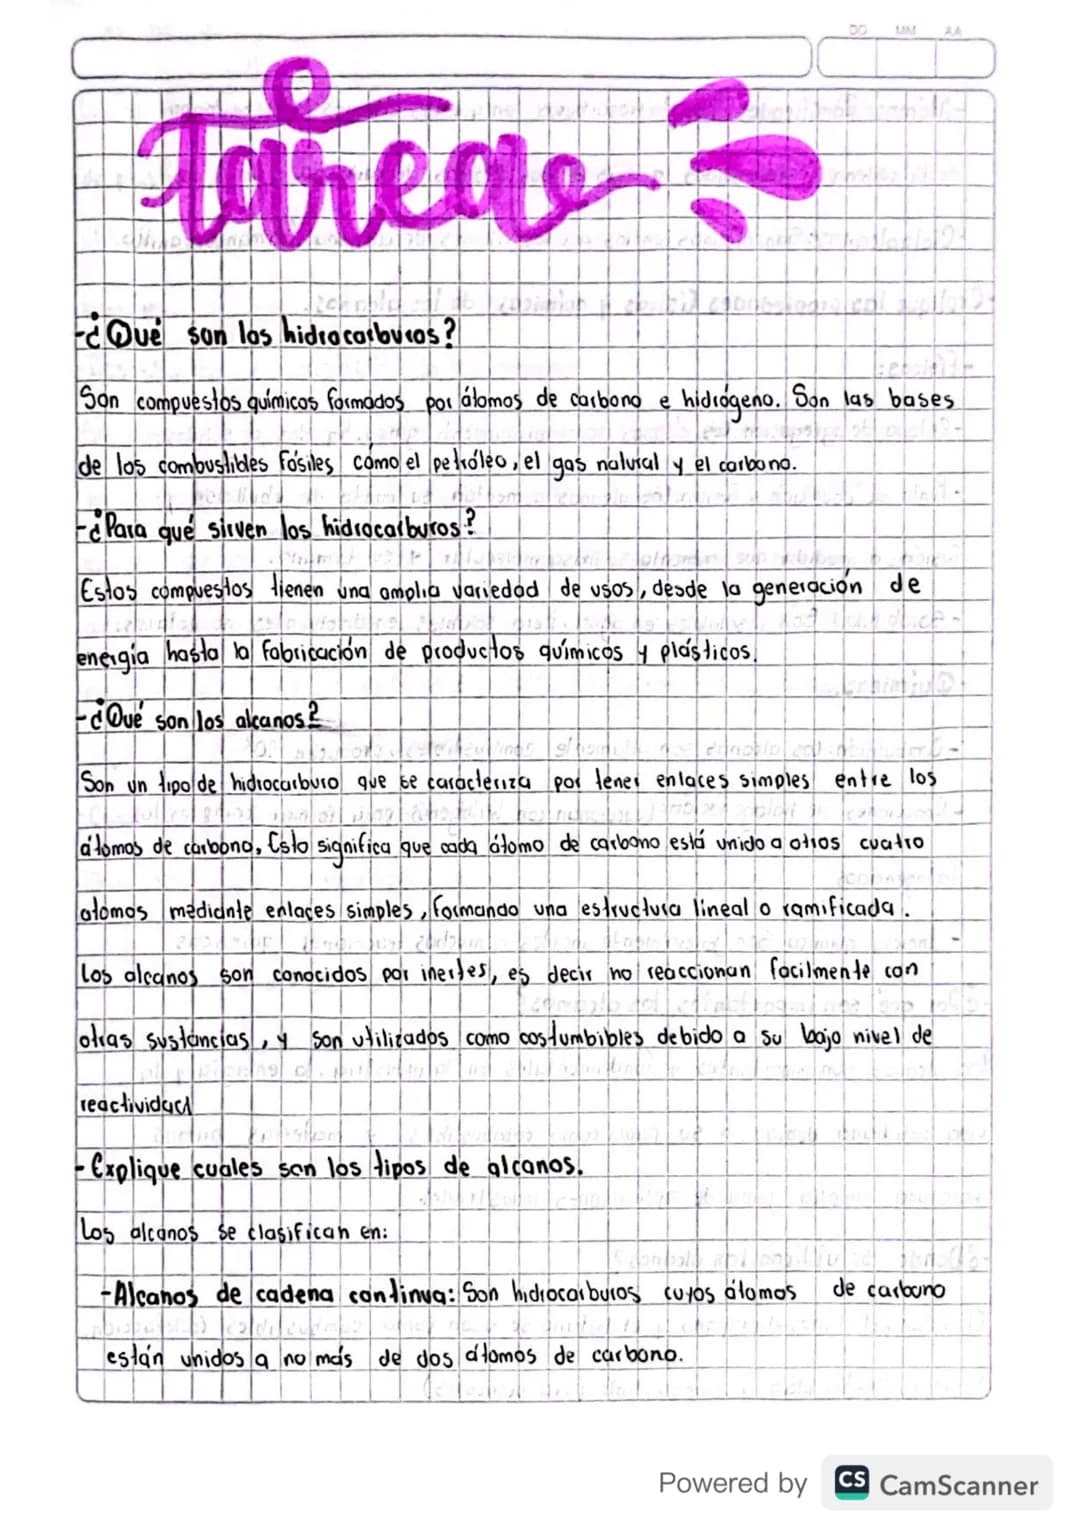 DD MM AA
Tarea
-¿Qué son los hidrocarburos?
Son compuestos químicos formados por átomos de carbono e hidrógeno. Son las bases
de los combustibles fósiles cómo el petróleo, el gas natural y el carbono.
-¿Para qué sirven los hidrocarburos?
Estos compuestos tienen una amplia variedad de usos, desde la generación de
energía hasta la fabricación de productos químicos y plásticos.
-¿Qué son los alcanos?
Son un tipo de hidrocarburo que se caracteriza por tener enlaces simples entre los
átomos de carbono, Esto significa que cada átomo de carbono está unido a otros cuatro
atomos mediante enlaces simples, formando una estructura lineal o ramificada.
Los alcanos son conocidos por inertes, es decir no reaccionan facilmente con
otras sustancias, y son utilizados como costumbibles debido a su bajo nivel de
reactividad
-Explique cuales son los tipos de alcanos.
Los alcanos se clasifican en:
-Alcanos de cadena continua: Son hidrocarburos cuyos átomos de carbono
están unidos a no más de dos átomos de carbono.
Powered by CS CamScanner